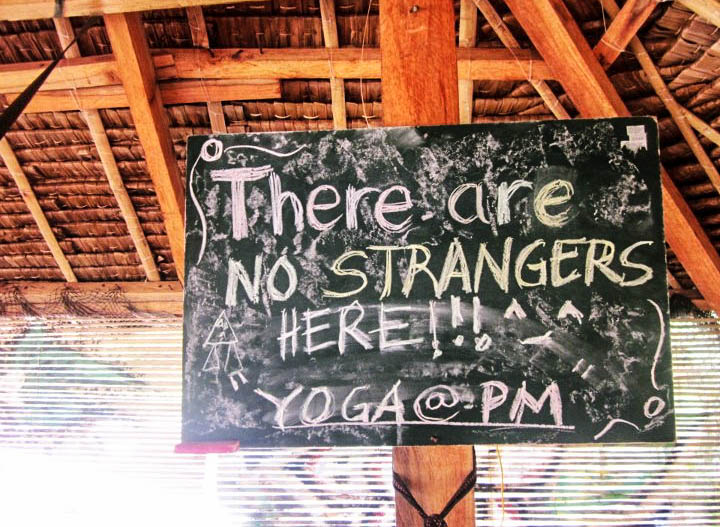 There are
NO STRANGERS
HERE!!!
YOGA@PM